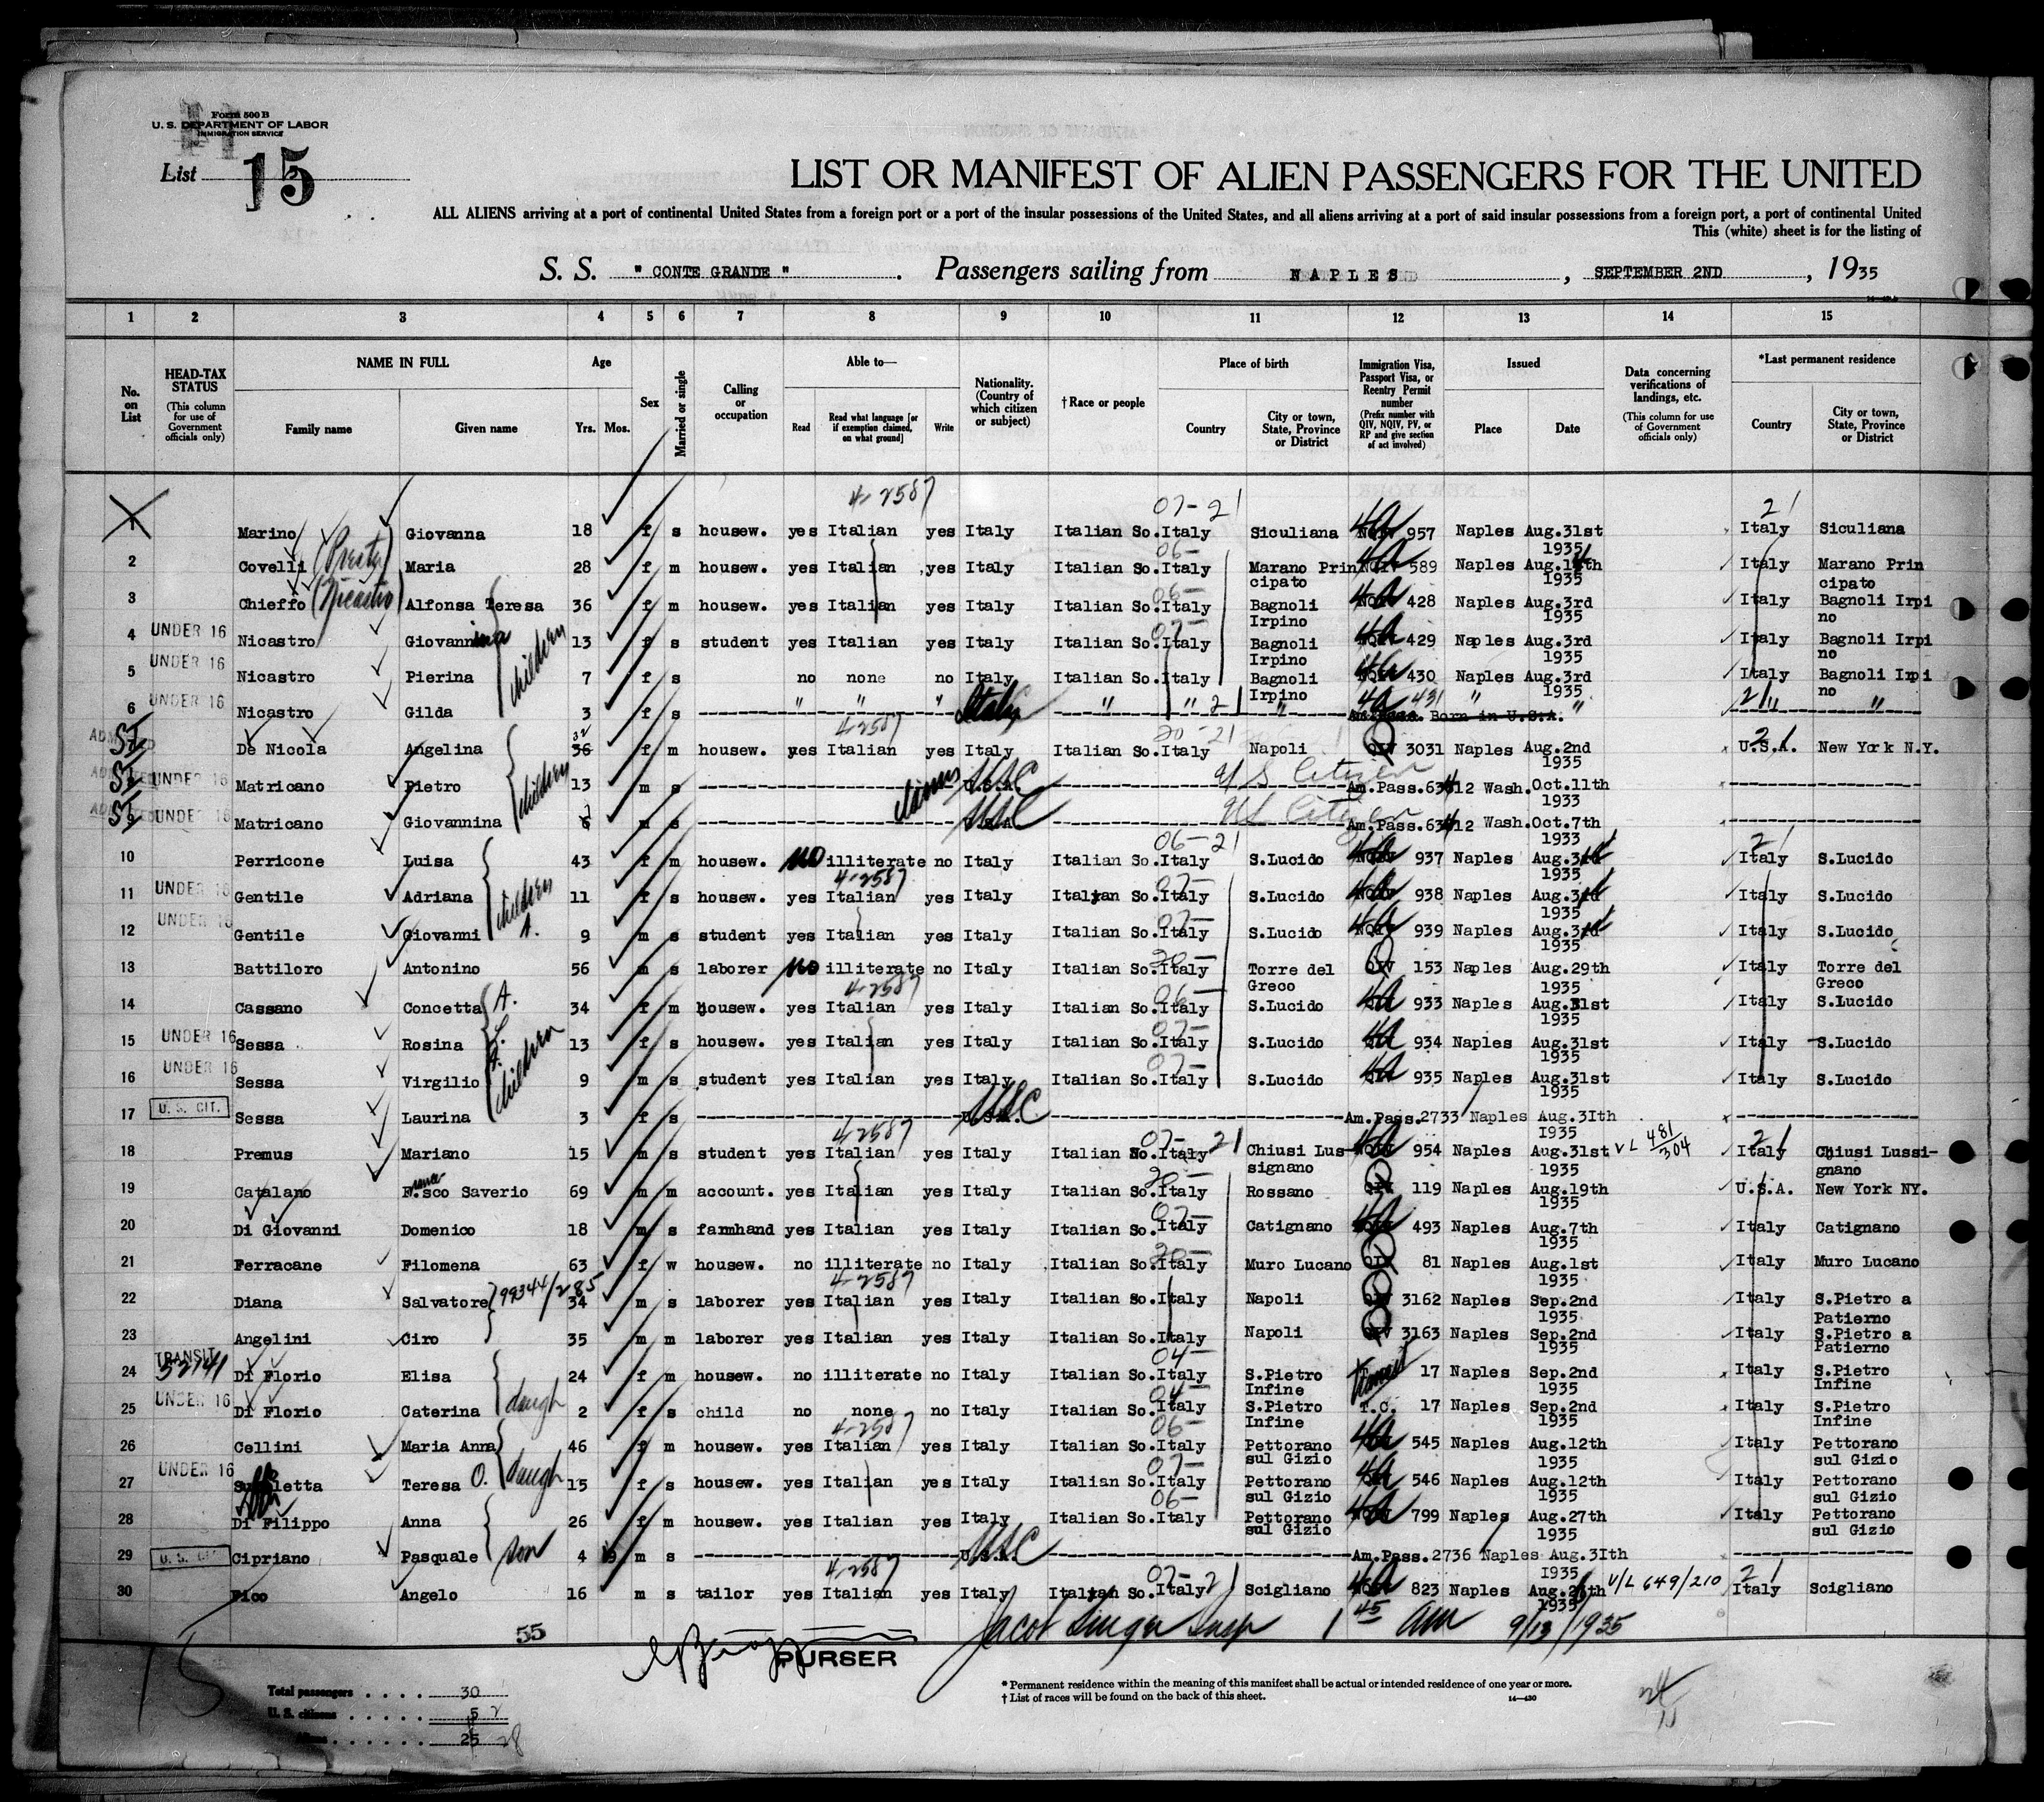 Form 500 B
U. S. DEPARTMENT OF LABOR
IMMIGRATION SERVICE
List 15
LIST OR MANIFEST OF ALIEN PASSENGERS FOR THE UNITED
ALL ALIENS arriving at a port of continental United States from a foreign port or a port of the insular possessions of the United States, and all aliens arriving at a port of said insular possessions from a foreign port, a port of continental United
This (white) sheet is for the listing of
S. S. " CONTE GRANDE " . Passengers sailing from NAPLES , SEPTEMBER 2ND , 1935
1 2 3 4 5 6 7 8 9 10 11 12 13 14 15
No. on List
HEAD-TAX STATUS (This column for use of Government officials only)
NAME IN FULL
Family name Given name
Age
Yrs. Mos.
Sex
Married or single
Calling or occupation
Able to—
Read Read what language [or if exemption claimed, on what ground] Write
Nationality. (Country of which citizen or subject)
†Race or people
Place of birth
Country City or town, State, Province or District
Immigration Visa, Passport Visa, or Reentry Permit number (Prefix number with QIV, NQIV, PV, or RP and give section of act involved)
Issued
Place Date
Data concerning verifications of landings, etc. (This column for use of Government officials only)
*Last permanent residence
Country City or town, State, Province or District
4-2587 07-21 21
1 Marino Giovanna 18 f s housew. yes Italian yes Italy Italian So. Italy Siculiana 4a 957 Naples Aug.31st 1935 Italy Siculiana
2 Covelli (Presta) Maria 28 f m housew. yes Italian yes Italy Italian So. Italy Marano Principato 4a 589 Naples Aug. 1935 Italy Marano Principato
3 Chieffo (Nicastro) Alfonsa Teresa 36 f m housew. yes Italian yes Italy Italian So. Italy Bagnoli Irpino 4a 428 Naples Aug.3rd 1935 Italy Bagnoli Irpino
4 UNDER 16 Nicastro Giovannina children 13 f s student yes Italian yes Italy Italian So. Italy Bagnoli Irpino 4a 429 Naples Aug.3rd 1935 Italy Bagnoli Irpino
5 UNDER 16 Nicastro Pierina 7 f s no none no Italy Italian So. Italy Bagnoli Irpino 4a 430 Naples Aug.3rd 1935 Italy Bagnoli Irpino
6 UNDER 16 Nicastro Gilda 3 f s " " " Italy " " 21 " 4a 431 " Born in U.S.A. " 21 " "
SI De Nicola Angelina 36 f m housew. yes Italian yes Italy Italian So. Italy Napoli 3031 Naples Aug.2nd 1935 U.S.A. New York N.Y.
SI UNDER 16 Matricano Pietro children 13 m s claims USC U.S.A. US Citizen Am.Pass. Wash. Oct.11th 1933
SI 9 UNDER 16 Matricano Giovannina 6 m s USC U.S.A. US Citizen Am.Pass. Wash. Oct.7th 1933
10 Perricone Luisa 43 f m housew. no illiterate no Italy Italian So. Italy S.Lucido 4a 937 Naples Aug.3rd 1935 Italy S.Lucido
11 UNDER 16 Gentile Adriana children 11 f s housew. yes Italian yes Italy Italian So. Italy S.Lucido 4a 938 Naples Aug.3rd 1935 Italy S.Lucido
12 UNDER 16 Gentile Giovanni 9 m s student yes Italian yes Italy Italian So. Italy S.Lucido 4a 939 Naples Aug.3rd 1935 Italy S.Lucido
13 Battiloro Antonino 56 m s laborer no illiterate no Italy Italian So. Italy Torre del Greco QIV 153 Naples Aug.29th 1935 Italy Torre del Greco
14 Cassano Concetta 34 f m housew. yes Italian yes Italy Italian So. Italy S.Lucido 4a 933 Naples Aug.31st 1935 Italy S.Lucido
15 UNDER 16 Sessa Rosina children 13 f s housew. yes Italian yes Italy Italian So. Italy S.Lucido 4a 934 Naples Aug.31st 1935 Italy S.Lucido
16 UNDER 16 Sessa Virgilio 9 m s student yes Italian yes Italy Italian So. Italy S.Lucido 4a 935 Naples Aug.31st 1935 Italy S.Lucido
17 U. S. CIT. Sessa Laurina 3 f s USC U.S.A. Am.Pass.2733 Naples Aug.3Ith I935
18 Premus Mariano 15 m s student yes Italian yes Italy Italian So. Italy Chiusi Lussignano 4a 954 Naples Aug.31st 1935 VL 481/304 Italy Chiusi Lussignano
19 Catalano F.sco Saverio 69 m m account. yes Italian yes Italy Italian So. Italy Rossano 119 Naples Aug.19th 1935 U.S.A. New York NY.
20 Di Giovanni Domenico 18 m s farmhand yes Italian yes Italy Italian So. Italy Catignano 4a 493 Naples Aug.7th 1935 Italy Catignano
21 Ferracane Filomena 63 f w housew. no illiterate no Italy Italian So. Italy Muro Lucano QIV 81 Naples Aug.1st 1935 Italy Muro Lucano
22 Diana Salvatore 99344/285 34 m s laborer yes Italian yes Italy Italian So. Italy Napoli QIV 3162 Naples Sep.2nd 1935 Italy S.Pietro a Patierno
23 Angelini Ciro 35 m m laborer yes Italian yes Italy Italian So. Italy Napoli QIV 3163 Naples Sep.2nd 1935 Italy S.Pietro a Patierno
24 TRANSIT 52141 Di Florio Elisa 24 f m housew. no illiterate no Italy Italian So. Italy S.Pietro Infine Transit 17 Naples Sep.2nd 1935 Italy S.Pietro Infine
25 UNDER 16 Di Florio Caterina daugh 2 f s child no none no Italy Italian So. Italy S.Pietro Infine T.C. 17 Naples Sep.2nd 1935 Italy S.Pietro Infine
26 Cellini Maria Anna 46 f m housew. yes Italian yes Italy Italian So. Italy Pettorano sul Gizio 4a 545 Naples Aug.12th 1935 Italy Pettorano sul Gizio
27 UNDER 16 Teresa O. daugh 15 f s housew. yes Italian yes Italy Italian So. Italy Pettorano sul Gizio 4a 546 Naples Aug.12th 1935 Italy Pettorano sul Gizio
28 Di Filippo Anna 26 f m housew. yes Italian yes Italy Italian So. Italy Pettorano sul Gizio 4a 799 Naples Aug.27th 1935 Italy Pettorano sul Gizio
29 U. S. CIT. Cipriano Pasquale son 4 m s USC U.S.A. Am.Pass.2736 Naples Aug.3Ith I935
30 Pico Angelo 16 m s tailor yes Italian yes Italy Italian So. Italy Scigliano 4a 823 Naples Aug. 1935 V/L 649/210 Italy Scigliano
55 Jacob Singer Insp 1 45 am 9/13/1935
PURSER
Total passengers . . . . 30
U. S. citizens . . . . . 5 2
Aliens . . . . . . 25 28
* Permanent residence within the meaning of this manifest shall be actual or intended residence of one year or more.
† List of races will be found on the back of this sheet. 14—430